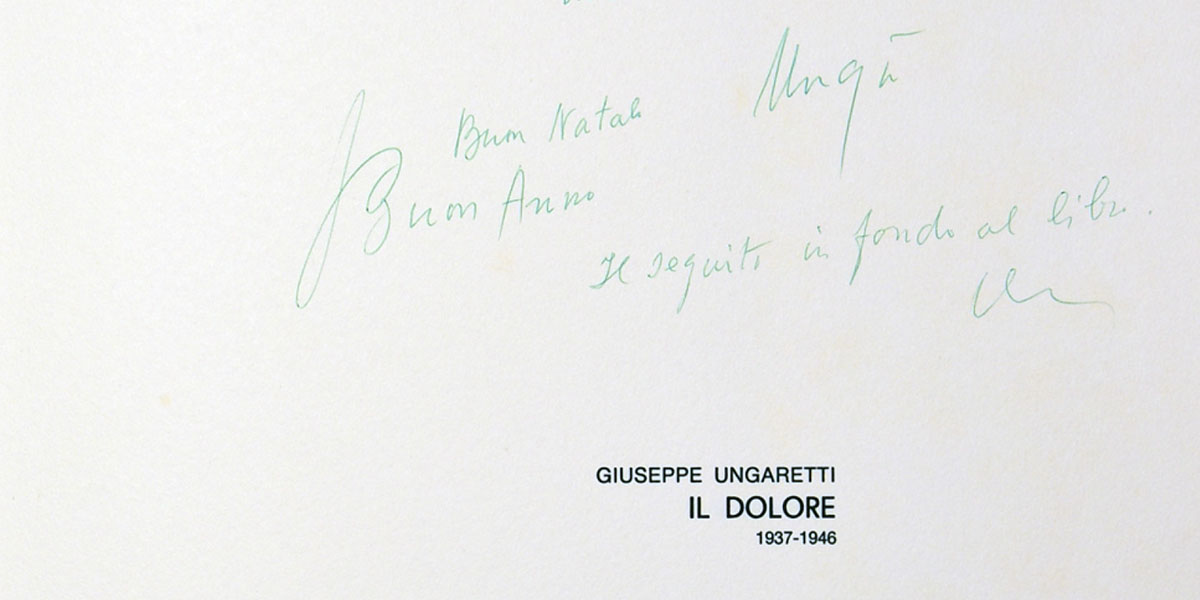 Ungà
Buon Natale
Buon Anno
Il seguito in fondo al libro.
GIUSEPPE UNGARETTI
IL DOLORE
1937-1946